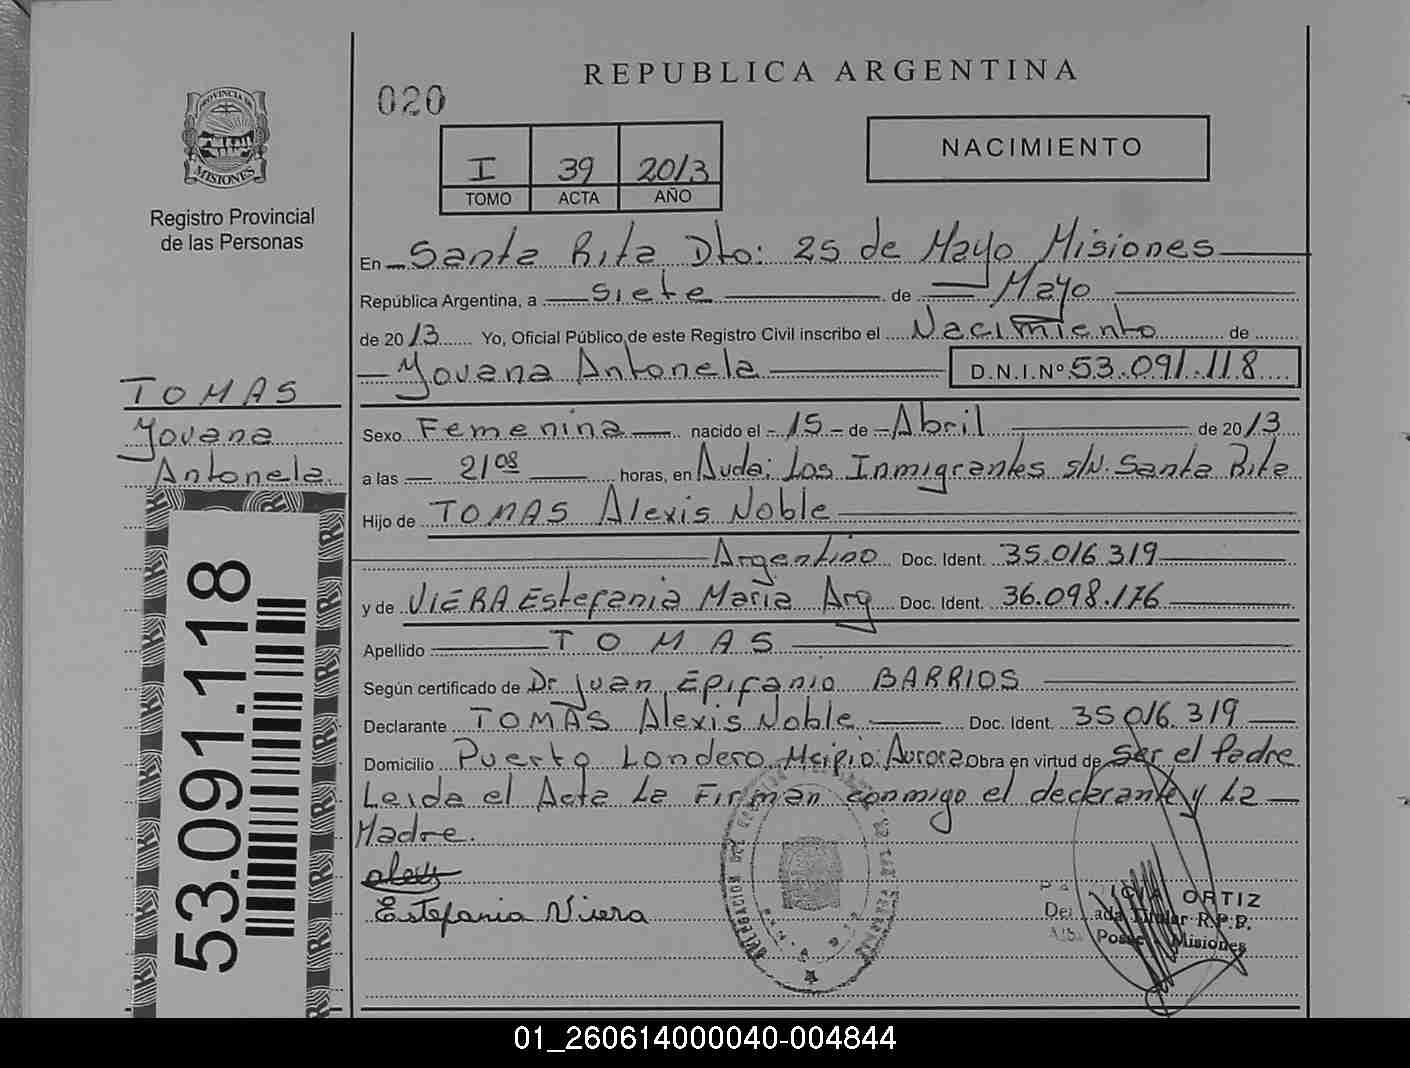 REPUBLICA ARGENTINA
020
PROVINCIA DE
MISIONES
Registro Provincial
de las Personas
I 39 2013
TOMO ACTA AÑO
NACIMIENTO
En Santa Rita Dto: 25 de Mayo Misiones
República Argentina, a siete de Mayo
de 2013 Yo, Oficial Público de este Registro Civil inscribo el Nacimiento de
Yovana Antonela D.N.I.Nº 53.091.118
TOMAS
Yovana
Antonela
53.091.118
Sexo Femenina nacido el 15 de Abril de 2013
a las 21 08 horas, en Avda: Los Inmigrantes s/N. Santa Rita
Hijo de TOMAS Alexis Noble
Argentino Doc. Ident. 35.016.319
y de VIERA Estefania Maria Arg Doc. Ident. 36.098.176
Apellido TOMAS
Según certificado de Dr. Juan Epifanio BARRIOS
Declarante TOMAS Alexis Noble Doc. Ident. 35.016.319
Domicilio Puerto Londero Mcipio: Aurora Obra en virtud de ser el Padre
Leida el Acta La Firman conmigo el declarante y La
Madre.
Estefania Viera
ORTIZ
Titular R.P.P.
Posse - Misiones
01_260614000040-004844